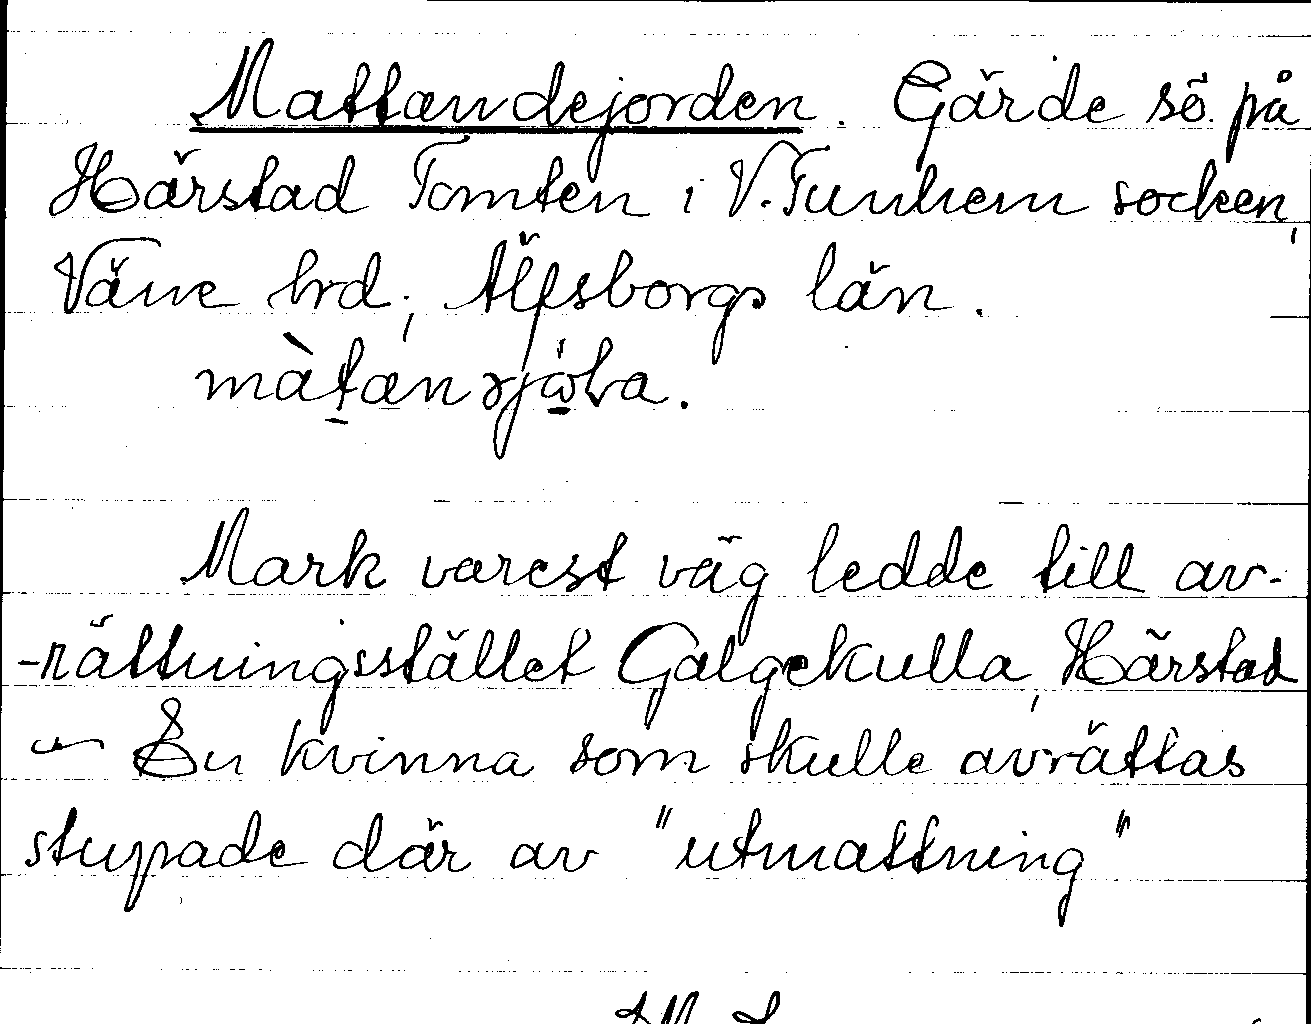 Mattandejorden. Gärde sö. på
Härstad Tomten i V. Tunhem socken,
Väne hrd; Älfsborgs län.
Mark varest väg ledde till av-
-rättningsstället Galgekulla, Härstad
— En kvinna som skulle avrättas
stupade där av "utmattning"